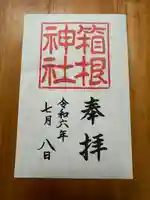 奉拝
箱根
神社
令和六年
七月 八日